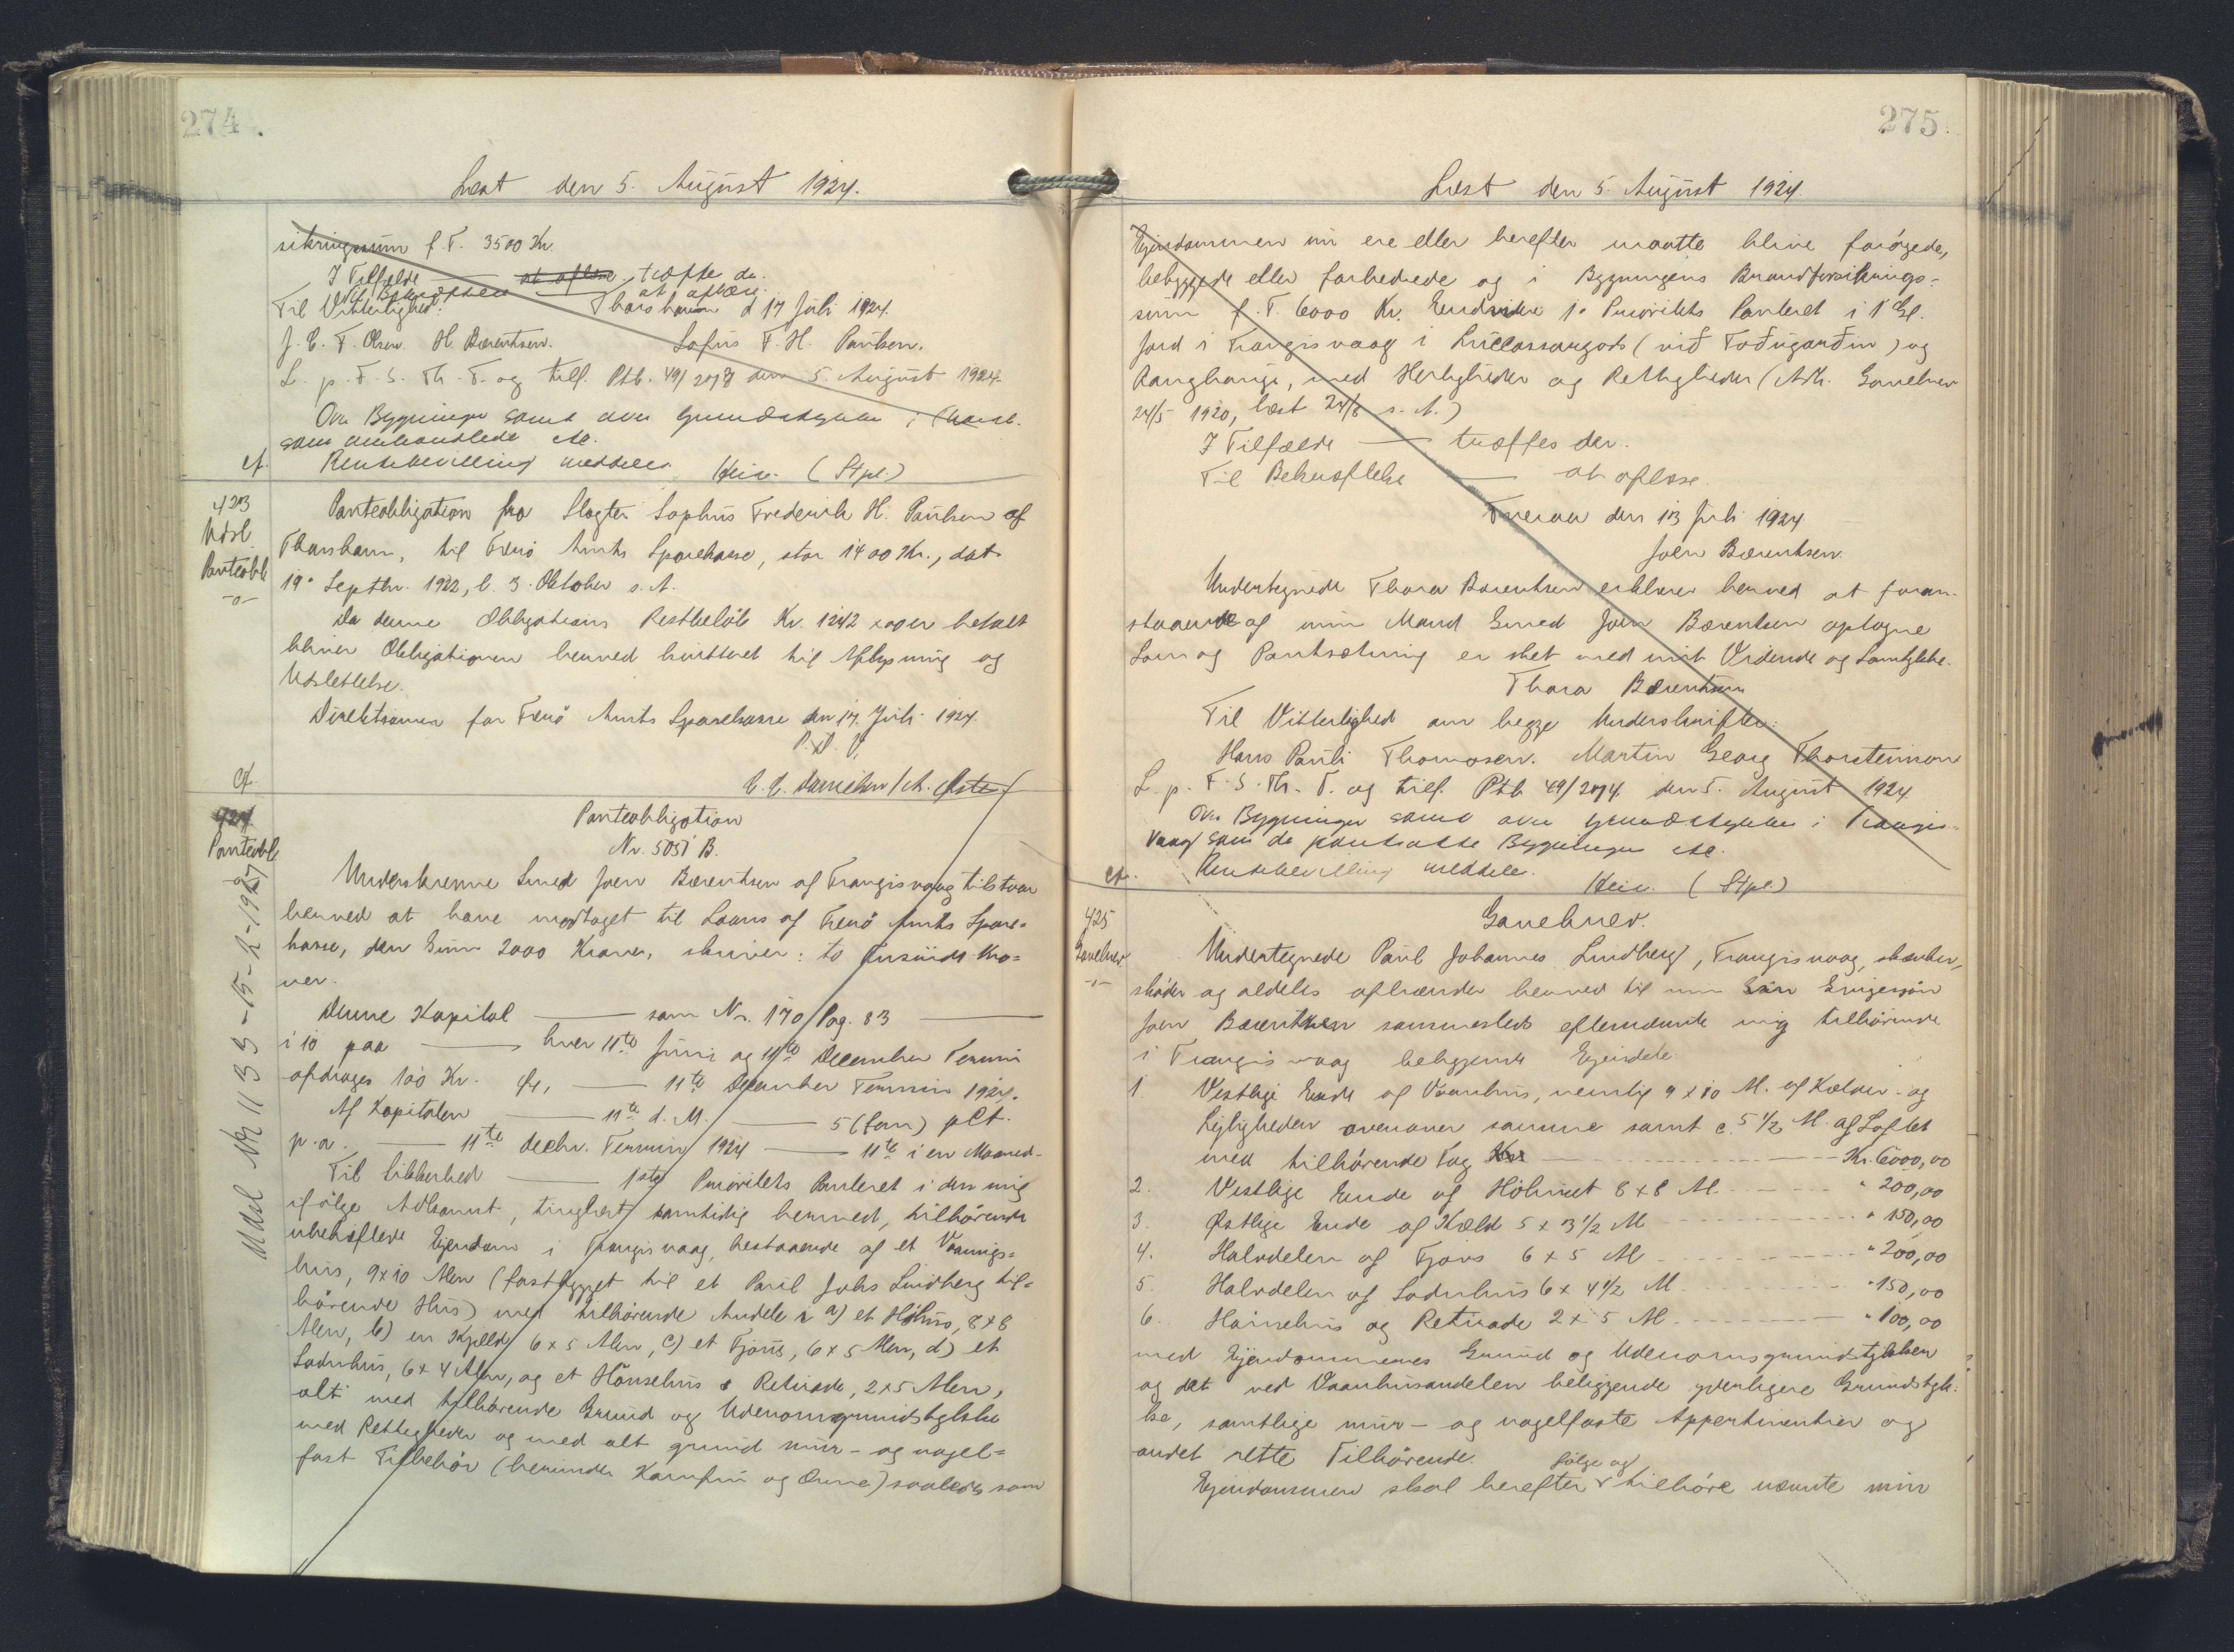 274.
Læst den 5. August 1924.
sikringssum f. T. 3500 Kr.
I Tilfælde — at aflæse. træffes de.
Til Bekræftelse — at aflæse.
Til Vitterlighed: Thorshavn d 17 Juli 1924.
J. C. F. Olsen. H. Bærentsen. Sofus F. H. Paulsen.
L. p. F. S. Th. T. og tilf. Ptb. 49/2073 den 5. August 1924.
Ovn Bygninger samt over Grundstykke i Thorsh.
som omhandlede etc.
cf. Rentebevilling meddeles. Heie. (Stpl.)
423
Udsl.
Panteobl.
-o-
Panteobligation fra Slagter Sophus Frederik H. Paulsen af
Thorshavn, til Færø Amts Sparekasse, stor 1400 Kr., dat.
19. Septbr. 1922, l. 3. Oktober s. A.
Da denne Obligations Restbeløb Kr. 1242 x oo er betalt
bliver Obligationen herved kvitteret til Aflysning og
Udslettelse.
Direktionen for Færø Amts Sparekasse den 17. Juli 1924.
P. D. V.
cf. C. C. Danielsen/A.
424
Panteobl.
Udsl Nr 1133 - 15-2-1927
Panteobligation
Nr. 5051 B.
Underskrevne Smed Joen Bærentsen af Trangisvaag tilstaar
herved at have modtaget til Laans af Færø Amts Spare=
kasse, den Sum 2000 Kroner, skriver: to Tusinde Kro=
ner.
Denne Kapital — som Nr. 170 Pag. 83 —
i 10 paa — hver 11te Juni og 11te December Termin
afdrages 100 Kr. — 11te December Termin 1924.
Af Kapitalen — 11te d. M. — 5 (fem) pCt.
p. a. — 11te Decbr. Termin 1924 — 11te i en Maaned-
Til Sikkerhed — 1ste Prioritets Panteret i den mig
ifølge Adkomst, tinglæst samtidig hermed, tilhørende
ubehæftede Ejendom i Trangisvaag, bestaaende af et Vaanings=
hus, 9x10 Alen (fastbygget til et Paul Johs Lindberg til=
hørende Hus) med tilhørende Andele i a) et Høhus, 8x8
Alen, b) en Kjæld 6 x 5 Alen, c) et Fjøs, 6 x 5 Alen, d) et
Ladehus, 6 x 4 Alen, og et Hønsehus & Retirade, 2x5 Alen,
alt med tilhørende Grund og Udenomsgrundstykke
med Rettigheder og med alt grund mur- og nagel=
fast Tilbehør (herunder Komfur og Ovne) saaledes som
275.
Læst den 5. August 1924.
Ejendommen nu ere eller herefter maatte blive forøgede,
bebyggede eller forbedrede og i Bygningens Brandforsikrings=
sum f. T. 6000 Kr. Endvidere 1. Prioritets Panteret i 1 Gl.
Jord i Trangisvaag i Lücassargods (við Toðugarðin) og
Ranghange, med Herligheder og Rettigheder (Adk. Gavebrev
24/5 1920, læst 24/8 s. A.)
I Tilfælde — træffes der.
Til Bekræftelse — at aflæse.
Tveraa den 13 Juli 1924.
Joen Bærentsen.
Undertegnede Thora Bærentsen erklærer herved at foran-
staaende af min Mand Smed Joen Bærentsen optagne
Laan og Pantsætning er sket med mit Vidende og Samtykke.
Thora Bærentsen
Til Vitterlighed om begge Underskrifter:
Hans Pauli Thomasen. Martin Georg Thorsteinson
L. p. F. S. Th. T. og tilf. Ptb. 49/2074 den 5. August 1924.
Ovn Bygninger samt over Grundstykke i Trangis=
vaag som de pantsatte Bygninger etc.
cf. Rentebevilling meddeles. Heie. (Stpl.)
425
Gavebrev
-o-
Gavebrev.
Undertegnede Paul Johannes Lindberg, Trangisvaag, skænker,
skøder og aldeles afhænder herved til min Svigersøn
Joen Bærentsen sammesteds efternævnte mig tilhørende
i Trangisvaag beliggende Ejendele:
1. Vestlige Ende af Vaanhus, nemlig 9 x 10 Al. af Kælder- og
Lejligheden ovenover samme samt c. 5 1/2 Al. af Loftet
med tilhørende Tag Kr. 6000,00
2. Vestlige Ende af Höhuset 8 x 8 Al. " 200,00
3. Østlige Ende af Kæld 5 x 3 1/2 Al " 150,00
4. Halvdelen af Fjøs 6 x 5 Al " 200,00
5. Halvdelen af Ladehus 6 x 4 1/2 Al. " 150,00
6. Hønsehus og Retirade 2 x 5 Al " 100,00
med Ejendommenes Grund og Udenomsgrundstykker
og det ved Vaanhusandelen beliggende yderligere Grundstyk-
ke, samtlige mur- og nagelfaste Appertinentier og
andet rette Tilhørende.
følge og
Ejendommen skal herefter tilhøre nævnte min